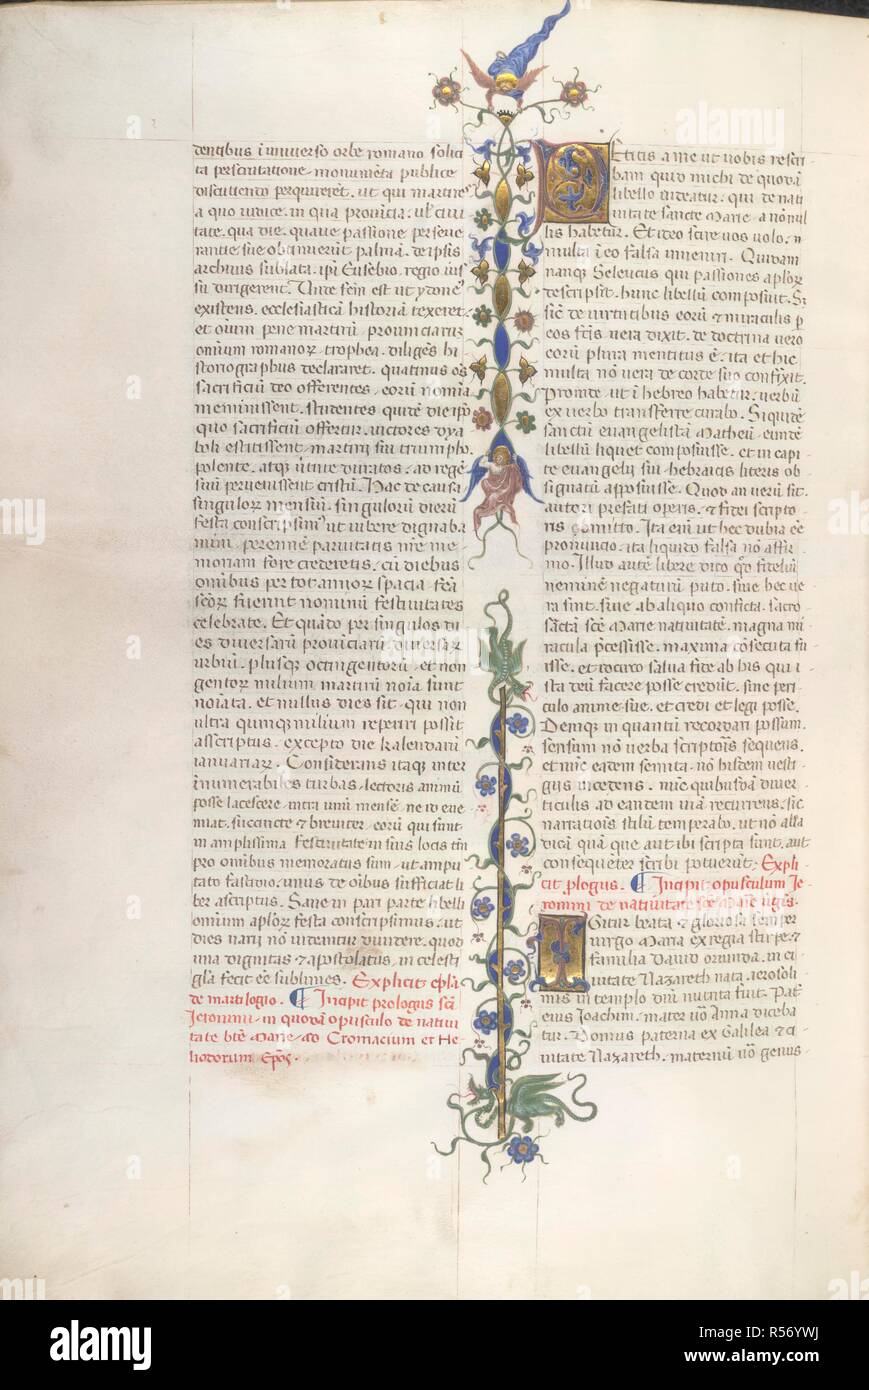 dentibus i universo orbe romano solici
ta perscrutatione monumēta publice
discutiendo perquirerēt. ut qui martires
a quo iudice. in qua provīcia. ul civi
tate. qua die. quave passione perseve
rantie sue obtinuerūt palmā. de ipsis
archivis sublata. ipi Eusebio. regio ius
su dirigerent. Unde
existens. ecclesiasticā historiā texeret.
et oīum pene martirū provinciarū
omniū romanorꝝ trophea. diligēs hi
storiographus declararet. quatinus
sacrificiū deo offerentes. eorū noīa
meminissent. studentes quidē die ipo
quo sacrificiū offertur. victores dya
boli extitissent. martirii sui triumpho
polente. atqꝫ
suū pervenissent cristū. Hac de causa
singulorꝝ mensiū. singulorū dierū
festa conscripsim ut iubere dignaba
mini. perenne parvitatis nre me
moriam fore crederetis. cū diebus
omibus per tot annorꝝ spacia
scōrꝝ fuerint nominū festivitates
celebrate. Et quādo per singulos di
es diversarū provinciarū diversarꝝ
urbiū. plusqꝫ octingentorū. et non
gentorꝝ milium martirū noīa sunt
noīata. et nullus dies sit. qui non
ultra quinqꝫ milium reperiri possit
asscriptus. excepto die kalendarū
ianuariarꝝ. Considerans itaqꝫ inter
inumerabiles turbas. lectoris animū
posse lacescere. intra unū mensē. ne id eve
niat. succincte et breviter. eorū qui sunt
in amplissima festivitate in suis locis tm
pro omibus memoratus sum. ut ampu
tato fastidio. unus de oībus sufficiat li
ber ascriptus. Sane in pari parte libelli
omnium aplorꝝ festa conscripsimus. ut
dies varii nō videantur dividere. quod
una dignitas et apostolatus. in celesti
glā fecit eē sublimes. Explicit epla
de martilogio. Incipit prologus scī
Jeronimi. in quodā opusculo de nativi
tate bte Marie. ad Cromacium et He
liodorum epos.
Petitis a me ut vobis rescri
bam quid michi de quodā
libello videatur. qui de nati
vitate sancte Marie. a nōnul
lis habetur. Et ideo scire vos volo.
multa i eo falsa inveniri. Quidam
namqꝫ Seleucus qui passiones aplorꝝ
descripsit. hunc libellū composuit. Sz
sic de virtutibus eorū et miraculis p
eos fctis vera dixit. de doctrina vero
eorū plura mentitus ē. ita et hic
multa nō vera de corde suo confixit.
Proinde. ut i hebreo habetur. verbū
ex verbo transferre curabo. Siquidē
sanctū evangelistā Matheū. eundē
libellū liquet composuisse. et in capi
te evangelij sui hebraicis literis ob
signatū apposuisse. Quod an verū sit.
autori prefati operis. et fidei scripto
ris cōmitto. Ita enī ut hec dubia eē
pronuncio. ita liquido falsa nō affir
mo. Illud autē libere dico qđ fideliū
neminē negaturū puto. sive hec ve
ra sint. sive ab aliquo conficta. sacro
sāctā scē Marie nativitatē. magna mi
racula pcessisse. maxima cōsecuta fu
isse. et idcirco salva fide ab his qui i
sta deū facere posse credūt. sine peri
culo anime sue. et credi et legi posse.
Deniqꝫ in quantū recordari possum.
sensum nō verba scriptoris sequens.
et nūc eadem semita. nō hisdem vesti
giis incedens. nūc quibusdā diver
ticulis ad eandem viā recurrens. sic
narratiōis stilū temperabo. ut nō alia
dicā quā que aut ibi scripta sunt. aut
consequēter scribi potuerūt. Expli
cit plogus. Incipit opusculum Je
ronimi de nativitate sce Marie vgīs.
Igitur beata et gloriosa semper
virgo Maria ex regia stirpe et
familia David oriunda. in ci
vitate Nazareth nata. Jerosoli
mis in templo dnī nutrita fuit. Pater
eius Joachim. mater vō Anna diceba
tur. Domus paterna ex Galilea et ci
vitate Nazareth. maternū vō genus
alamy
alamy
Image ID: R56YWJ
www.alamy.com